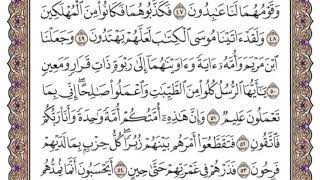 وَقَوْمُهُمَا لَنَا عَٰبِدُونَ ٤٧ فَكَذَّبُوهُمَا فَكَانُوا۟ مِنَ ٱلْمُهْلَكِينَ
٤٨ وَلَقَدْ ءَاتَيْنَا مُوسَى ٱلْكِتَٰبَ لَعَلَّهُمْ يَهْتَدُونَ ٤٩ وَجَعَلْنَا
ٱبْنَ مَرْيَمَ وَأُمَّهُۥٓ ءَايَةً وَءَاوَيْنَٰهُمَآ إِلَىٰ رَبْوَةٍ ذَاتِ قَرَارٍ وَمَعِينٍ
٥٠ يَٰٓأَيُّهَا ٱلرُّسُلُ كُلُوا۟ مِنَ ٱلطَّيِّبَٰتِ وَٱعْمَلُوا۟ صَٰلِحًا إِنِّى بِمَا
تَعْمَلُونَ عَلِيمٌ ٥١ وَإِنَّ هَٰذِهِۦٓ أُمَّتُكُمْ أُمَّةً وَٰحِدَةً وَأَنَا۠ رَبُّكُمْ
فَٱتَّقُونِ ٥٢ فَتَقَطَّعُوٓا۟ أَمْرَهُم بَيْنَهُمْ زُبُرًا كُلُّ حِزْبٍۭ بِمَا لَدَيْهِمْ
فَرِحُونَ ٥٣ فَذَرْهُمْ فِى غَمْرَتِهِمْ حَتَّىٰ حِينٍ ٥٤ أَيَحْسَبُونَ أَنَّمَا نُمِدُّهُم